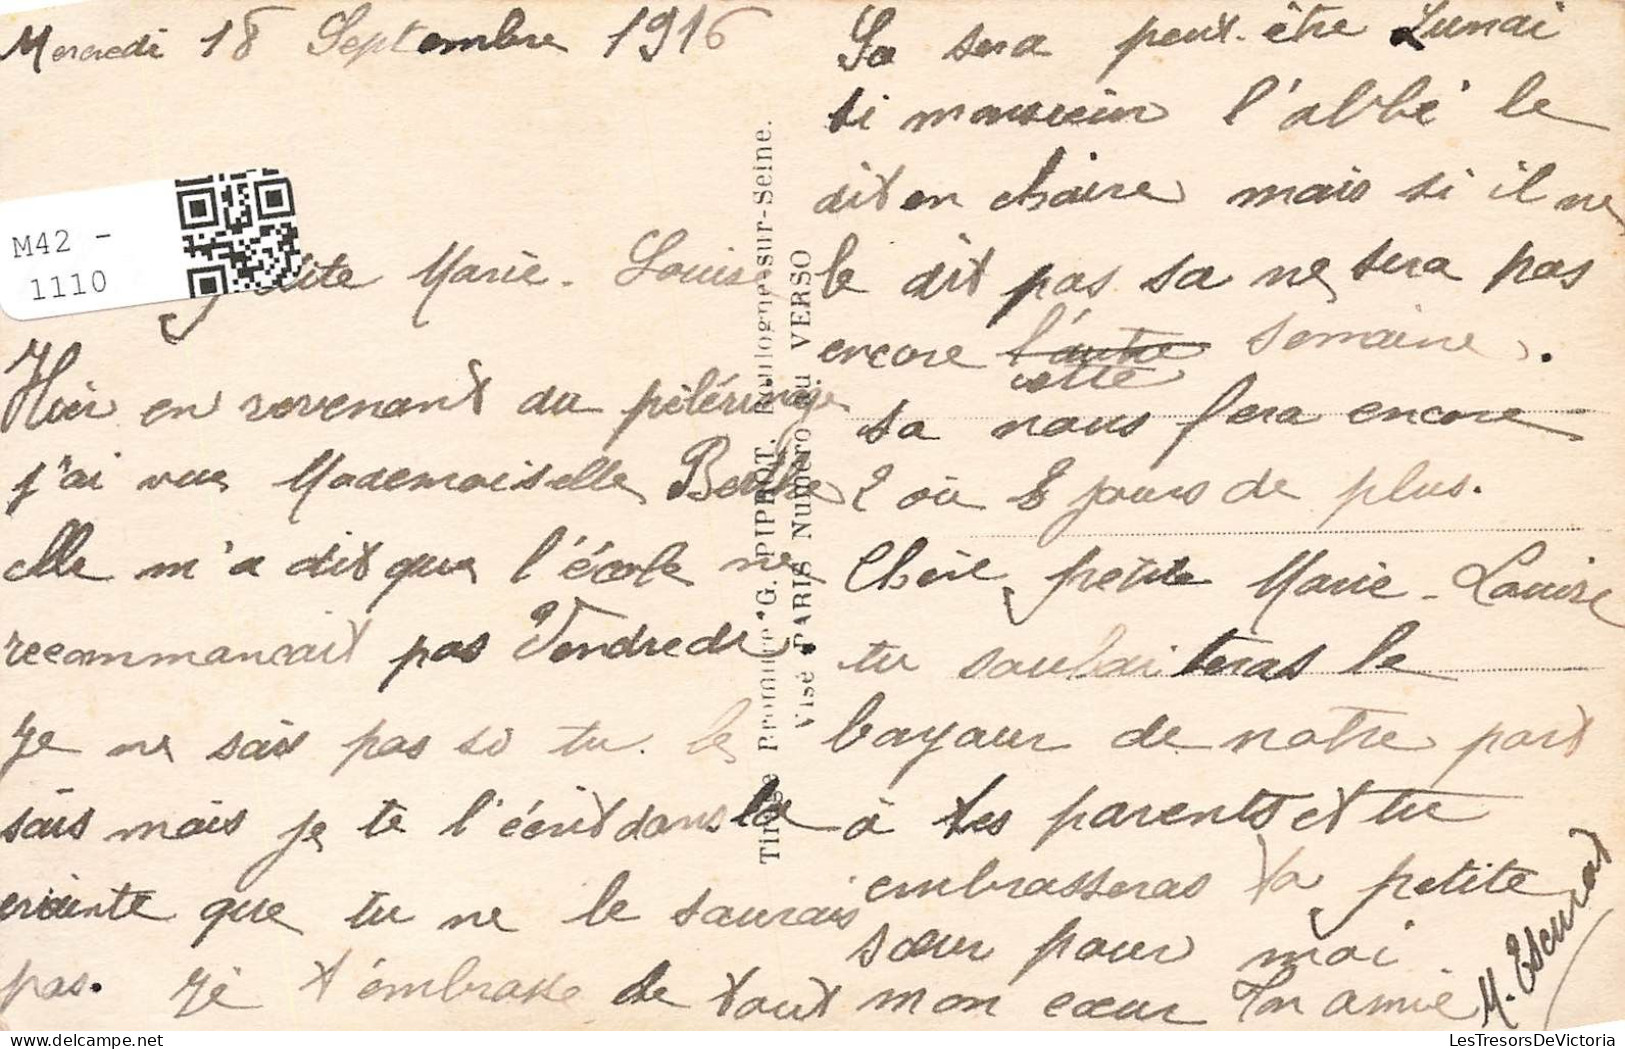 Mercredi 18 Septembre 1916
M42 -
1110
Petite Marie-Louise
Hier en revenant du pélérinage
j'ai vue Mademoiselle Berthe
elle m'a dit que l'école ne
recommancait pas Vendredi
je ne sais pas si tu le
sais mais je te l'écrit dans la
criainte que tu ne le saurais
pas. Je t'embrasse de tout mon cœur Ton amie
M. Escurat
Sa sera peut-être Lundi
si monsieur l'abbé le
dit en chaire mais si il ne
le dit pas sa ne sera pas
encore l'autre semaine.
cette
sa nous fera encore
2 ou 3 jours de plus.
Chère petite Marie-Louise
tu souhaiteras le
bayour de notre part
à tes parents et tu
embrasseras ta petite
sœur pour moi
Tirage Bromure "G. PIPROT. Boulogne-sur-Seine.
Visé PARIS Numéro au VERSO
LesTresorsDeVictoria.com